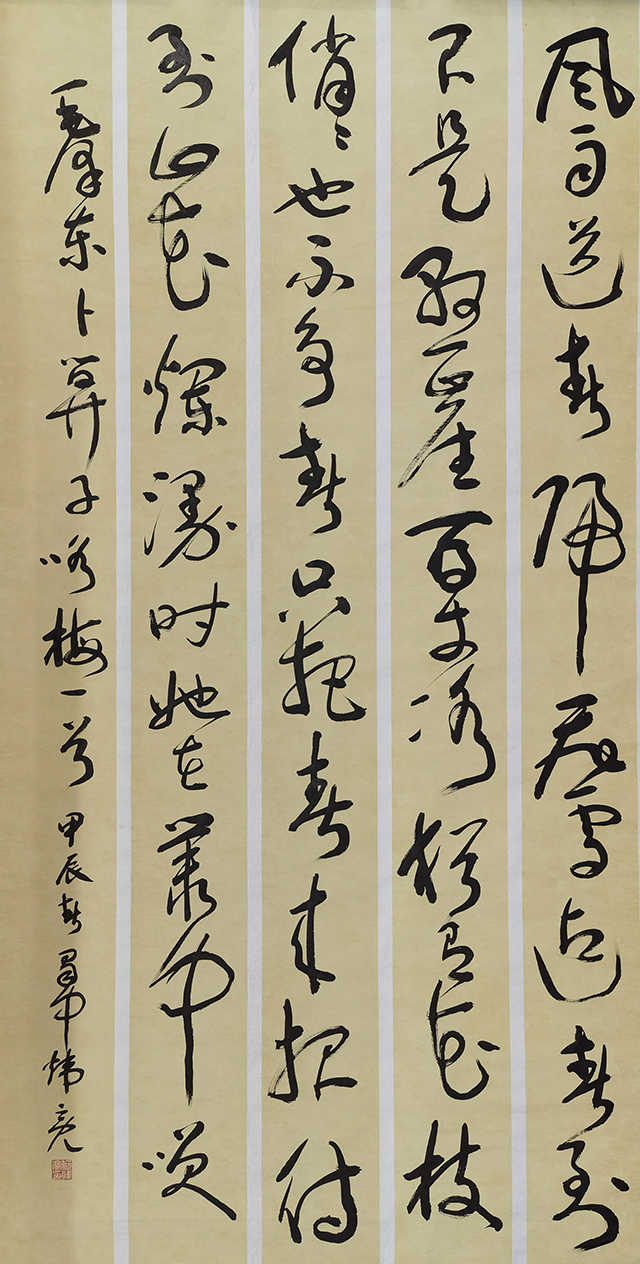 風雨送春歸飛雪迎春到
已是懸崖百丈冰猶有花枝
俏〻也不争春只把春来报待
到山花爛漫时她在叢中笑
毛澤东卜算子咏梅一首 甲辰春蜀中炜亮